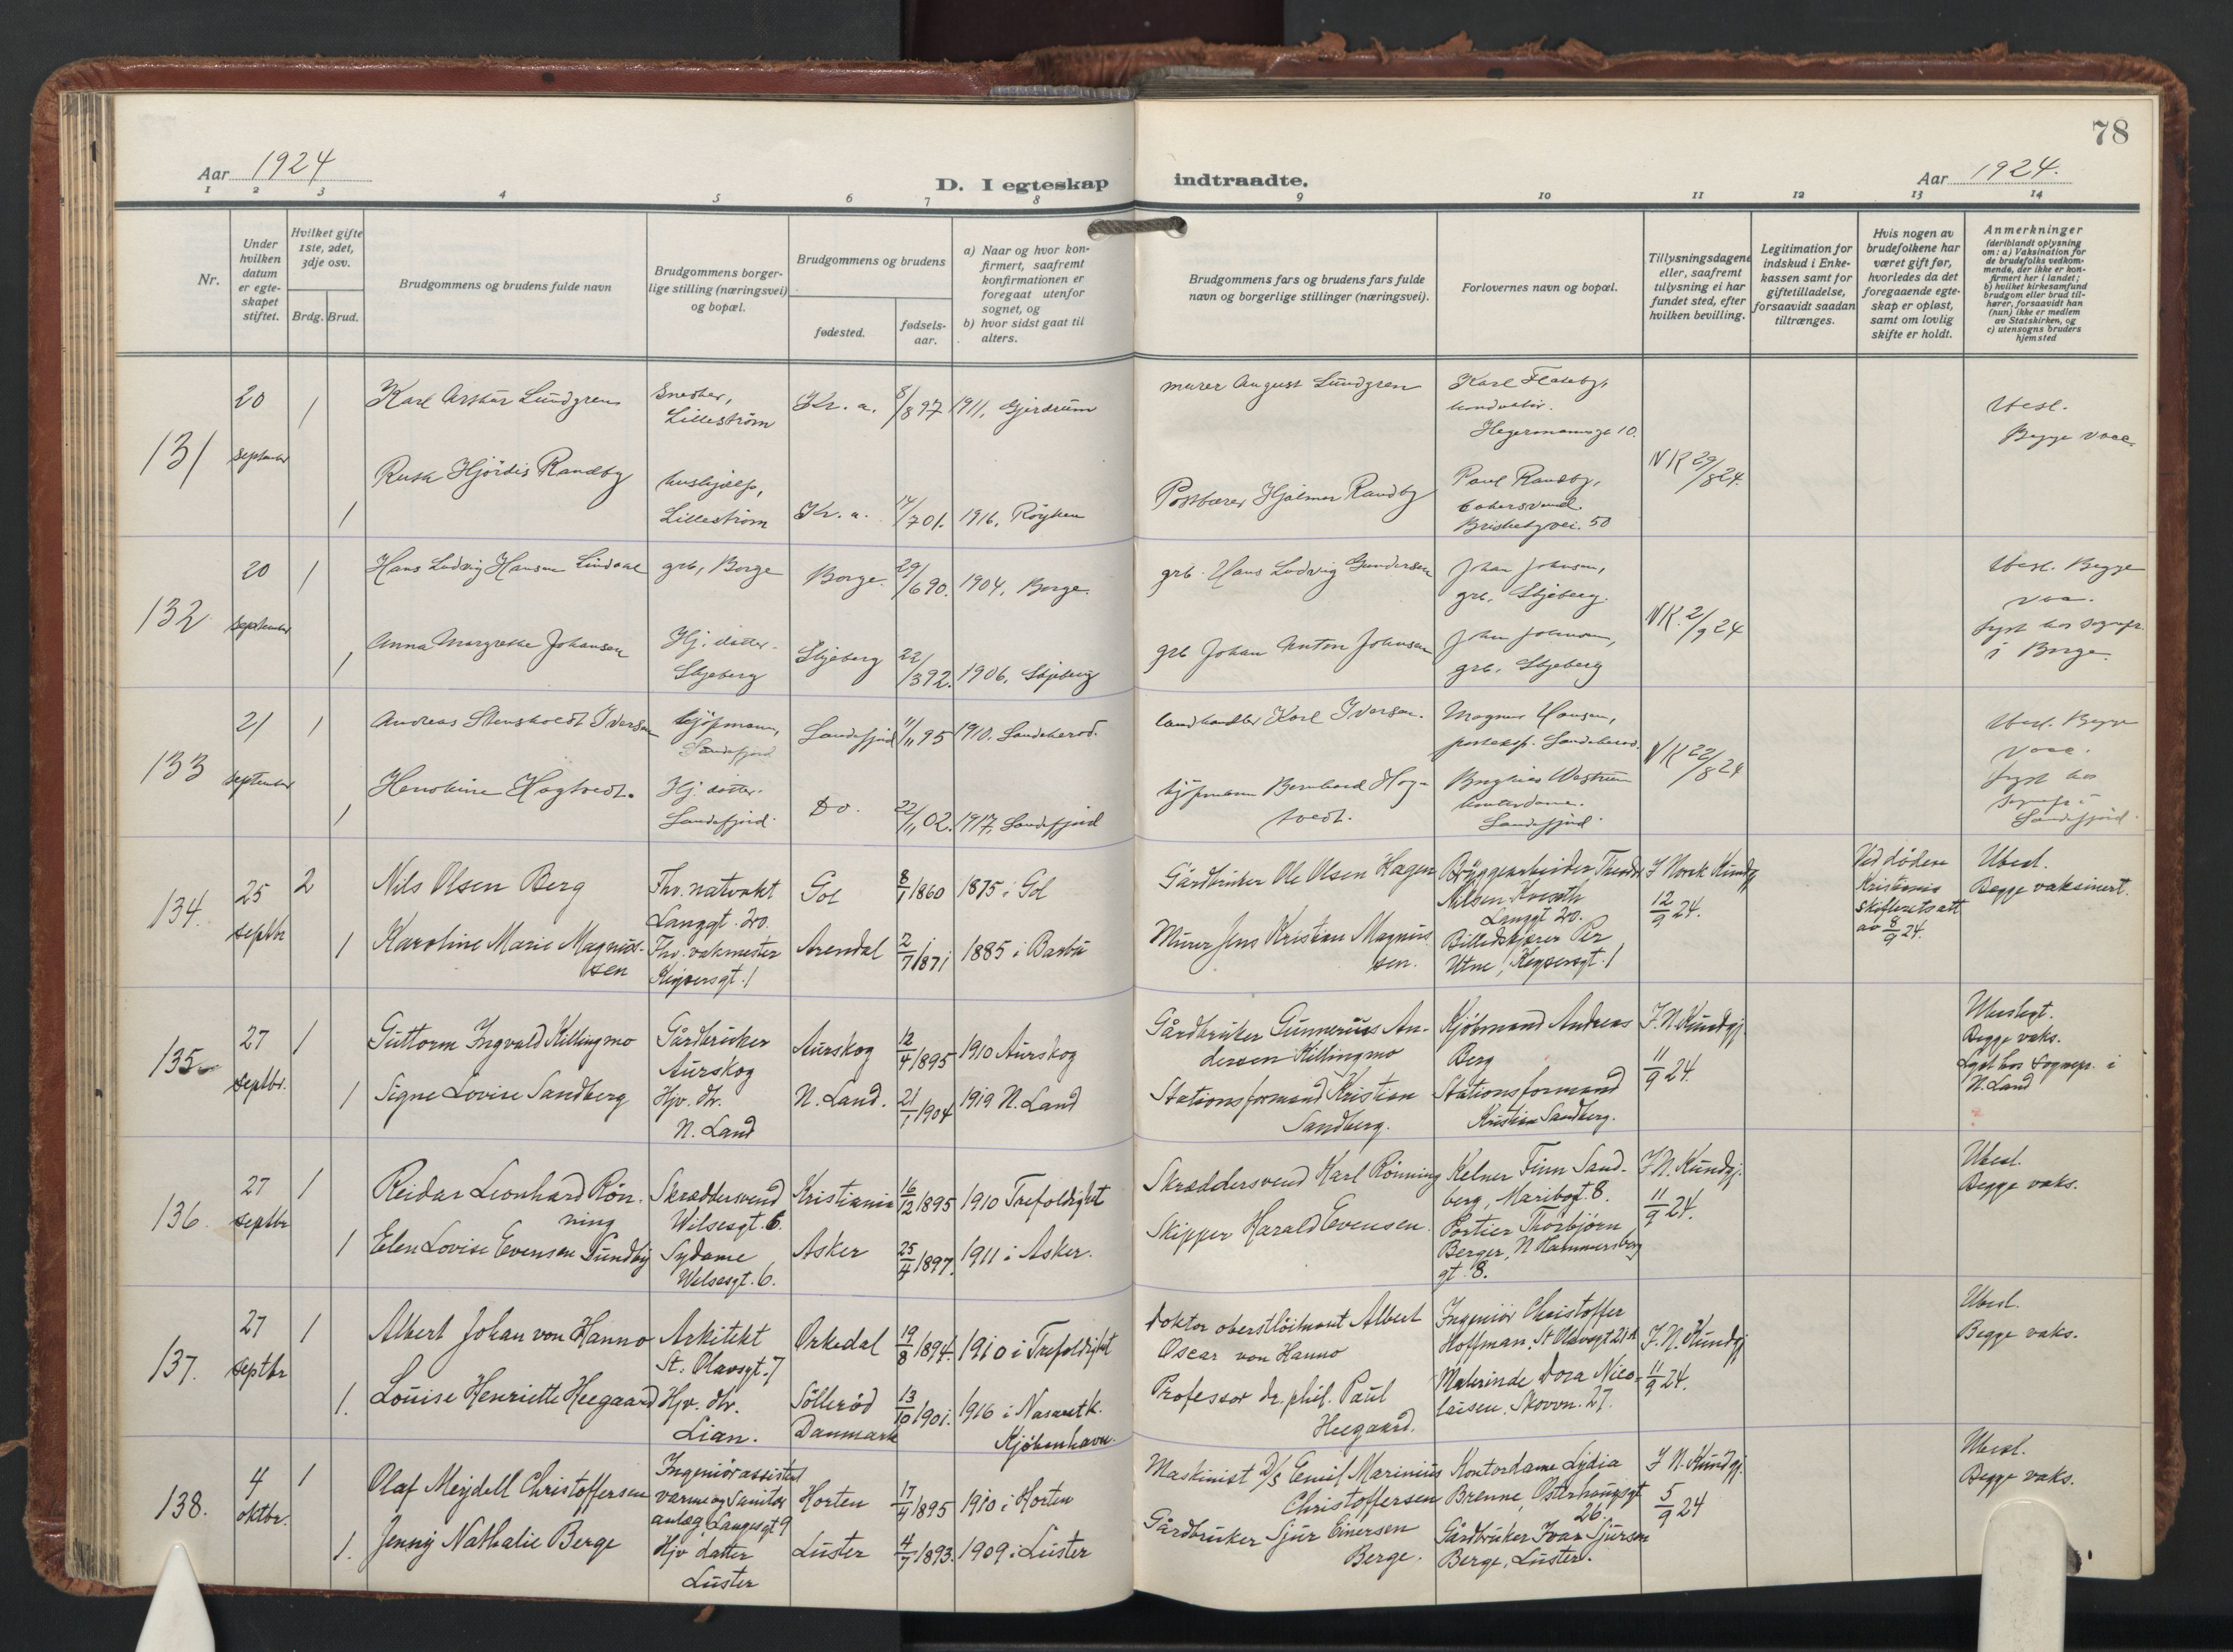 78
Aar 1924
D. I egteskap
indtraadte.
Aar 1924.
1 2 3 4 5 6 7 8 9 10 11 12 13 14
Nr.
Under hvilken datum er egte-skapet stiftet.
Hvilket gifte 1ste, 2det, 3dje osv.
Brdg. Brud.
Brudgommens og brudens fulde navn
Brudgommens borger-lige stilling (næringsvei) og bopæl.
Brudgommens og brudens
fødested.
fødsels-aar.
a) Naar og hvor kon-firmert, saafremt konfirmationen er foregaat utenfor sognet, og
b) hvor sidst gaat til alters.
Brudgommens fars og brudens fars fulde navn og borgerlige stillinger (næringsvei).
Forlovernes navn og bopæl.
Tillysningsdagene eller, saafremt tillysning ei har fundet sted, efter hvilken bevilling.
Legitimation for indskud i Enke-kassen samt for giftetilladelse, forsaavidt saadan tiltrænges.
Hvis nogen av brudefolkene har været gift før, hvorledes da det foregaaende egte-skap er opløst, samt om lovlig skifte er holdt.
Anmerkninger
(deriblandt oplysning om: a) Vaksination for de brudefolks vedkom-mende, der ikke er kon-firmert her i landet; b) hvilket kirkesamfund brudgom eller brud til-hører, forsaavidt han (hun) ikke er medlem av Statskirken, og c) utensogns bruders hjemsted
131
20 september
1
Karl Arthur Lundgren
Snekker, Lillestrøm
Kr. a.
8/8 97
1911, Gjerdrum
murer August Lundgren
Karl Flateby,
konduktør.
Hegermannsgt 10.
NK 29/8 24.
Ubesl.
Begge vacc.
1
Ruth Hjördis Randby
hushjælp,
Lillestrøm
Kr. a.
14/7 01.
1916, Røyken
Postbærer Hjalmar Randby
Paul Randby,
Briskebyvei. 50
132
20 september
1
Hans Ludvig Hansen Lindaas
grb, Borge
Borge.
29/6 90.
1904, Borge.
grb. Hans Ludvig Gundersen
Johan Johansen,
grb. Skjeberg.
NK. 2/9 24
Ubesl. Begge
vac.
lyst hos sognepr.
i Borge.
1
Anna Margrethe Johansen
Hj. datter.
Skjeberg
Skjeberg
22/3 92.
1906, Skjeberg
grb Johan Anton Johansen
Johan Johansen,
grb, Skjeberg
133
21 september
1
Andreas Stensholdt Iversen
kjøpmann,
Sandefjord
Sandefjord
11/11 95
1910. Sandeherred.
landhandler Karl Iversen.
Magnus Hansen,
posteksp. Sandeherred.
NK 22/8 24
Ubesl. Begge
vacc.
lyst hos
sognepr i
Sandefjord.
1
Henrikine Hogtvedt.
Hj. datter.
Sandefjord.
Do.
22/11 02.
1917, Sandefjord
kjøpmann Bernhard Hog-
tvedt.
kontordame.
Sandefjord.
134.
25 septbr
2
Nils Olsen Berg
Fhv. natvakt
Langgt. 20.
Gol
8/1 1860
1875 i Gol
Gårdbruker Ole Olsen Hagen
Bryggearbeider Theodor
Nilsen Kveseth
Langgt 20.
I Norsk Kundg
12/9 24.
Ved døden
Kristiania
skifteretsatt
av 8/9 24.
Ubesl.
Begge vaksinert.
1
Karoline Marie Magnus-
sen
Fhv. vakmester
Keysersgt. 1
Arendal
2/7 1871
1885 i Barbu
Murer Jens Kristian Magnus
sen.
Billedskjærer Per
Utne, Keysersgt. 1
135
27 septbr.
1
Guttorm Ingvald Killingmo
Gårdbruker
Aurskog
Aurskog
12/4 1895
1910 Aurskog
Gårdbruker Gunnerius An-
dersen Killingmo
Kjøbmand Andreas
Berg
I. N. Kundgj.
11/9 24.
Ubeslegt.
Begge vaks.
Lyst hos Sognepr. i
N. Land
1
Signe Lovise Sandberg
Hjv. dtr.
N. Land
N. Land.
21/1 1904
1919 N. Land
Stationsformand Kristian
Sandberg.
Stationsformand
Kristian Sandberg.
136.
27 septbr
1
Reidar Leonhard Røn-
ning
Skræddersvend
Wilsesgt. 6.
Kristiania
16/12 1895
1910 Trefoldight
Skræddersvend Karl Rønning
Kelner Finn Sand-
berg, Maribogt. 8.
I. N. Kundgj.
11/9 24.
Ubesl.
Begge vaks.
1
Elen Lovise Evensen Sundby
Sydame
Wilsesgt. 6.
Asker
25/4 1897.
1911 i Asker.
Skipper Harald Evensen.
Portier Thorbjørn
Berger, N Hammersberg
gt. 8.
137.
27 septbr
1
Albert Johan von Hanno
Arkitekt
St. Olavsgt. 7
Orkedal
19/8 1894.
1910 i Trefoldight
Doktor oberstløitnant Albert
Oscar von Hanno
Ingeniør Christoffer
Hoffman, St Olavsgt 21 A
I. N. Kundgj
11/9 24.
Ubesl.
Begge vaks.
1.
Louise Henriette Heegaard
Hjv. dtr.
Lian.
Søllerød
Danmark
13/10 1901.
1916 i Nasaretk.
Kjøbenhavn.
Professor dr. phil. Paul
Heegaard.
Malerinde Dora Nico-
laisen. Skovvn. 27.
138.
4 oktbr.
1
Olaf Meydell Christoffersen
Ingeniørassistent
varme og Sanitær
anlæg Langesgt 9
Horten
17/4 1895
1910 i Horten
Maskinist D/S Emil Marinius
Christoffersen
Kontordame Lydia
Brenne, Osterhausgt
26.
I N. Kundgj.
5/9 24
Ubesl.
Begge vaks.
1.
Jenny Nathalie Berge
Hjv datter
Luster
Luster
4/7 1893.
1909 i Luster
Gårdbruker Sjur Einersen
Berge.
Gårdbruker Ivar Sjursen
Berge, Luster.